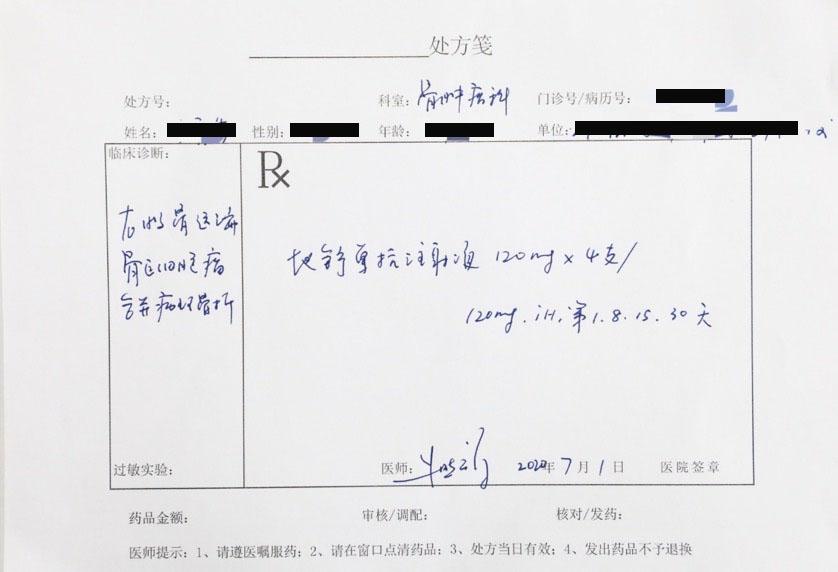 处方笺
处方号: 科室: 骨肿瘤科 门诊号/病历号:
姓名: 性别: 年龄: 单位:
临床诊断: Rx
骨巨细胞瘤
合并病理骨折
地舒单抗注射液 120mg x 4支/
120mg. iH. 第1.8.15.30天
过敏实验: 医师: 2020年7月1日 医院签章
药品金额: 审核/调配: 核对/发药:
医师提示: 1、请遵医嘱服药; 2、请在窗口点清药品; 3、处方当日有效; 4、发出药品不予退换